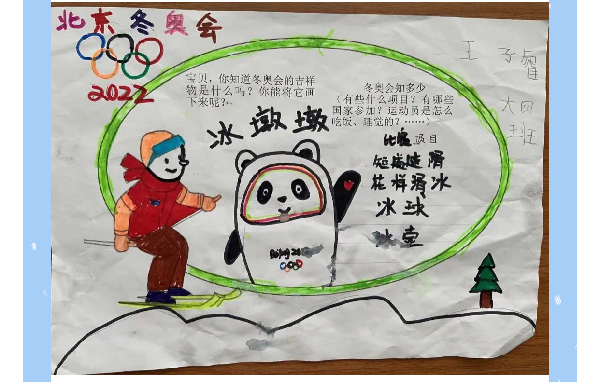 北京冬奥会
2022
宝贝，你知道冬奥会的吉祥
物是什么吗？你能将它画
下来呢？
冰墩墩
冬奥会知多少
（有些什么项目？有哪些
国家参加？运动员是怎么
吃饭、睡觉的？……）
比赛项目
短道速滑
花样滑冰
冰球
冰壶
王子
大四
班